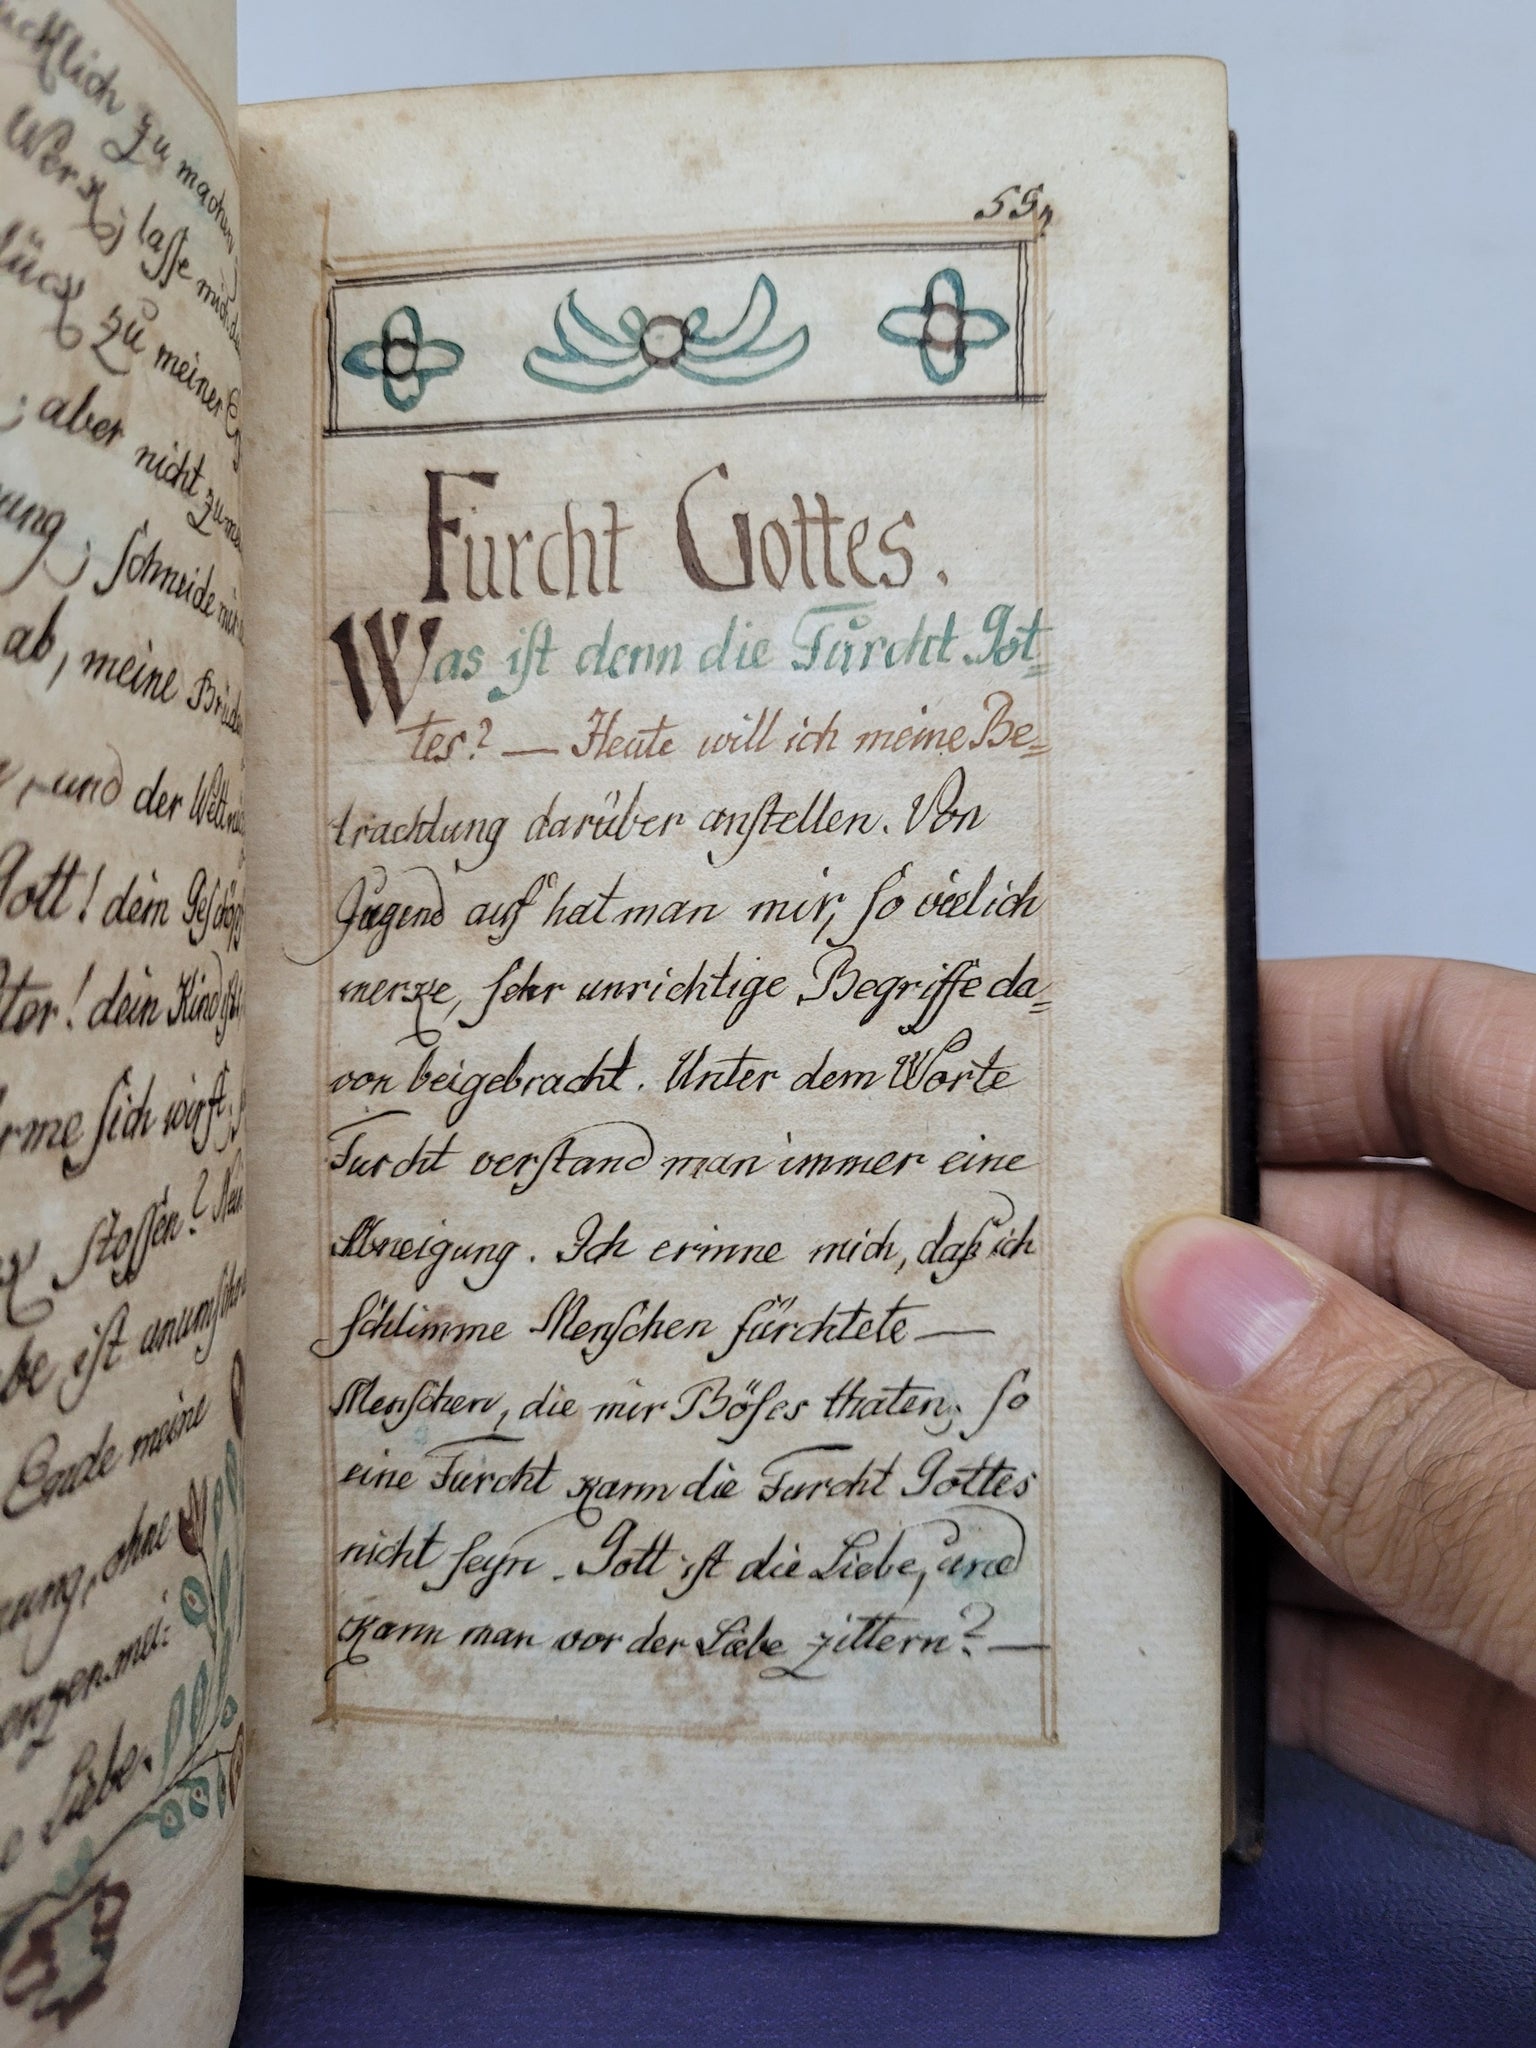 ücklich zu machen
Werk; lasse mich
lück zu meiner
; aber nicht zu
ung; schneide mir
ab, meine
, und der
Gott! dein
ter! dein Kind
rme sich wirft,
stossen?
be ist
Ende meine
ung, ohne
nzen mei:
Liebe.
Furcht Gottes.
Was ist denn die Furcht Got=
tes? — Heute will ich meine Be=
trachtung darüber anstellen. Von
Jugend auf hat man mir, so viel ich
merke, sehr unrichtige Begriffe da=
von beigebracht. Unter dem Worte
Furcht verstand man immer eine
Abneigung. Ich erinne mich, daß ich
schlimme Menschen fürchtete —
Menschen, die mir Böses thaten; so
eine Furcht kann die Furcht Gottes
nicht seyn. Gott ist die Liebe, und
kann man vor der Liebe zittern? —